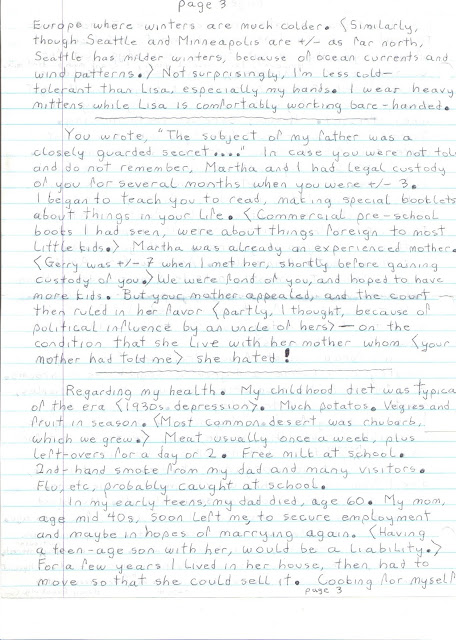 page 3
Europe where winters are much colder. (Similarly,
though Seattle and Minneapolis are +/- as far north,
Seattle has milder winters, because of ocean currents and
wind patterns.) Not surprisingly, I'm less cold-
tolerant than Lisa, especially my hands. I wear heavy
mittens while Lisa is comfortably working bare-handed.
You wrote, "The subject of my father was a
closely guarded secret...." In case you were not told
and do not remember, Martha and I had legal custody
of you for several months when you were +/- 3.
I began to teach you to read, making special booklets
about things in your life. (Commercial pre-school
books I had seen, were about things foreign to most
little kids.) Martha was already an experienced mother.
(Gerry was +/- 7 when I met her, shortly before gaining
custody of you.) We were fond of you, and hoped to have
more kids. But your mother appealed, and the court —
then ruled in her favor (partly, I thought, because of
political influence by an uncle of hers) — on the
condition that she live with her mother whom (your
mother had told me) she hated !
Regarding my health. My childhood diet was typical
of the era (1930s depression). Much potatos. Vegies and
fruit in season. (Most common desert was rhubarb,
which we grew.) Meat usually once a week, plus
left-overs for a day or 2. Free milk at school.
2nd-hand smoke from my dad and many visitors.
Flu, etc, probably caught at school.
In my early teens, my dad died, age 60. My mom,
age mid 40s, soon left me, to secure employment
and maybe in hopes of marrying again. (Having
a teen-age son with her, would be a liability.)
For a few years I lived in her house, then had to
move so that she could sell it. Cooking for myself
page 3